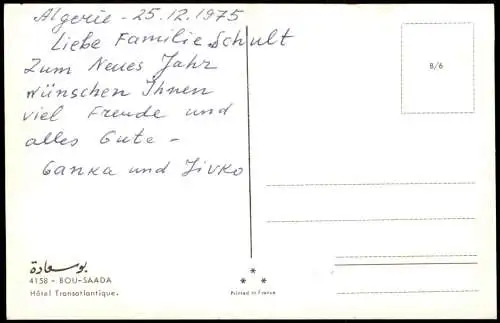 Algerie - 25.12.1975
Liebe Familie Schult
Zum Neues Jahr
wünschen Ihnen
viel Freude und
alles Gute -
Ganka und Jivko
8/6
بوسعادة
4158 - BOU-SAADA
Hôtel Transatlantique.
Printed in France